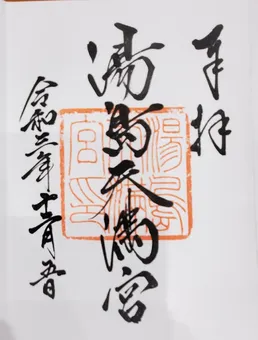 奉拝
湯島天満宮
令和三年十二月五日
湯島天満宮印